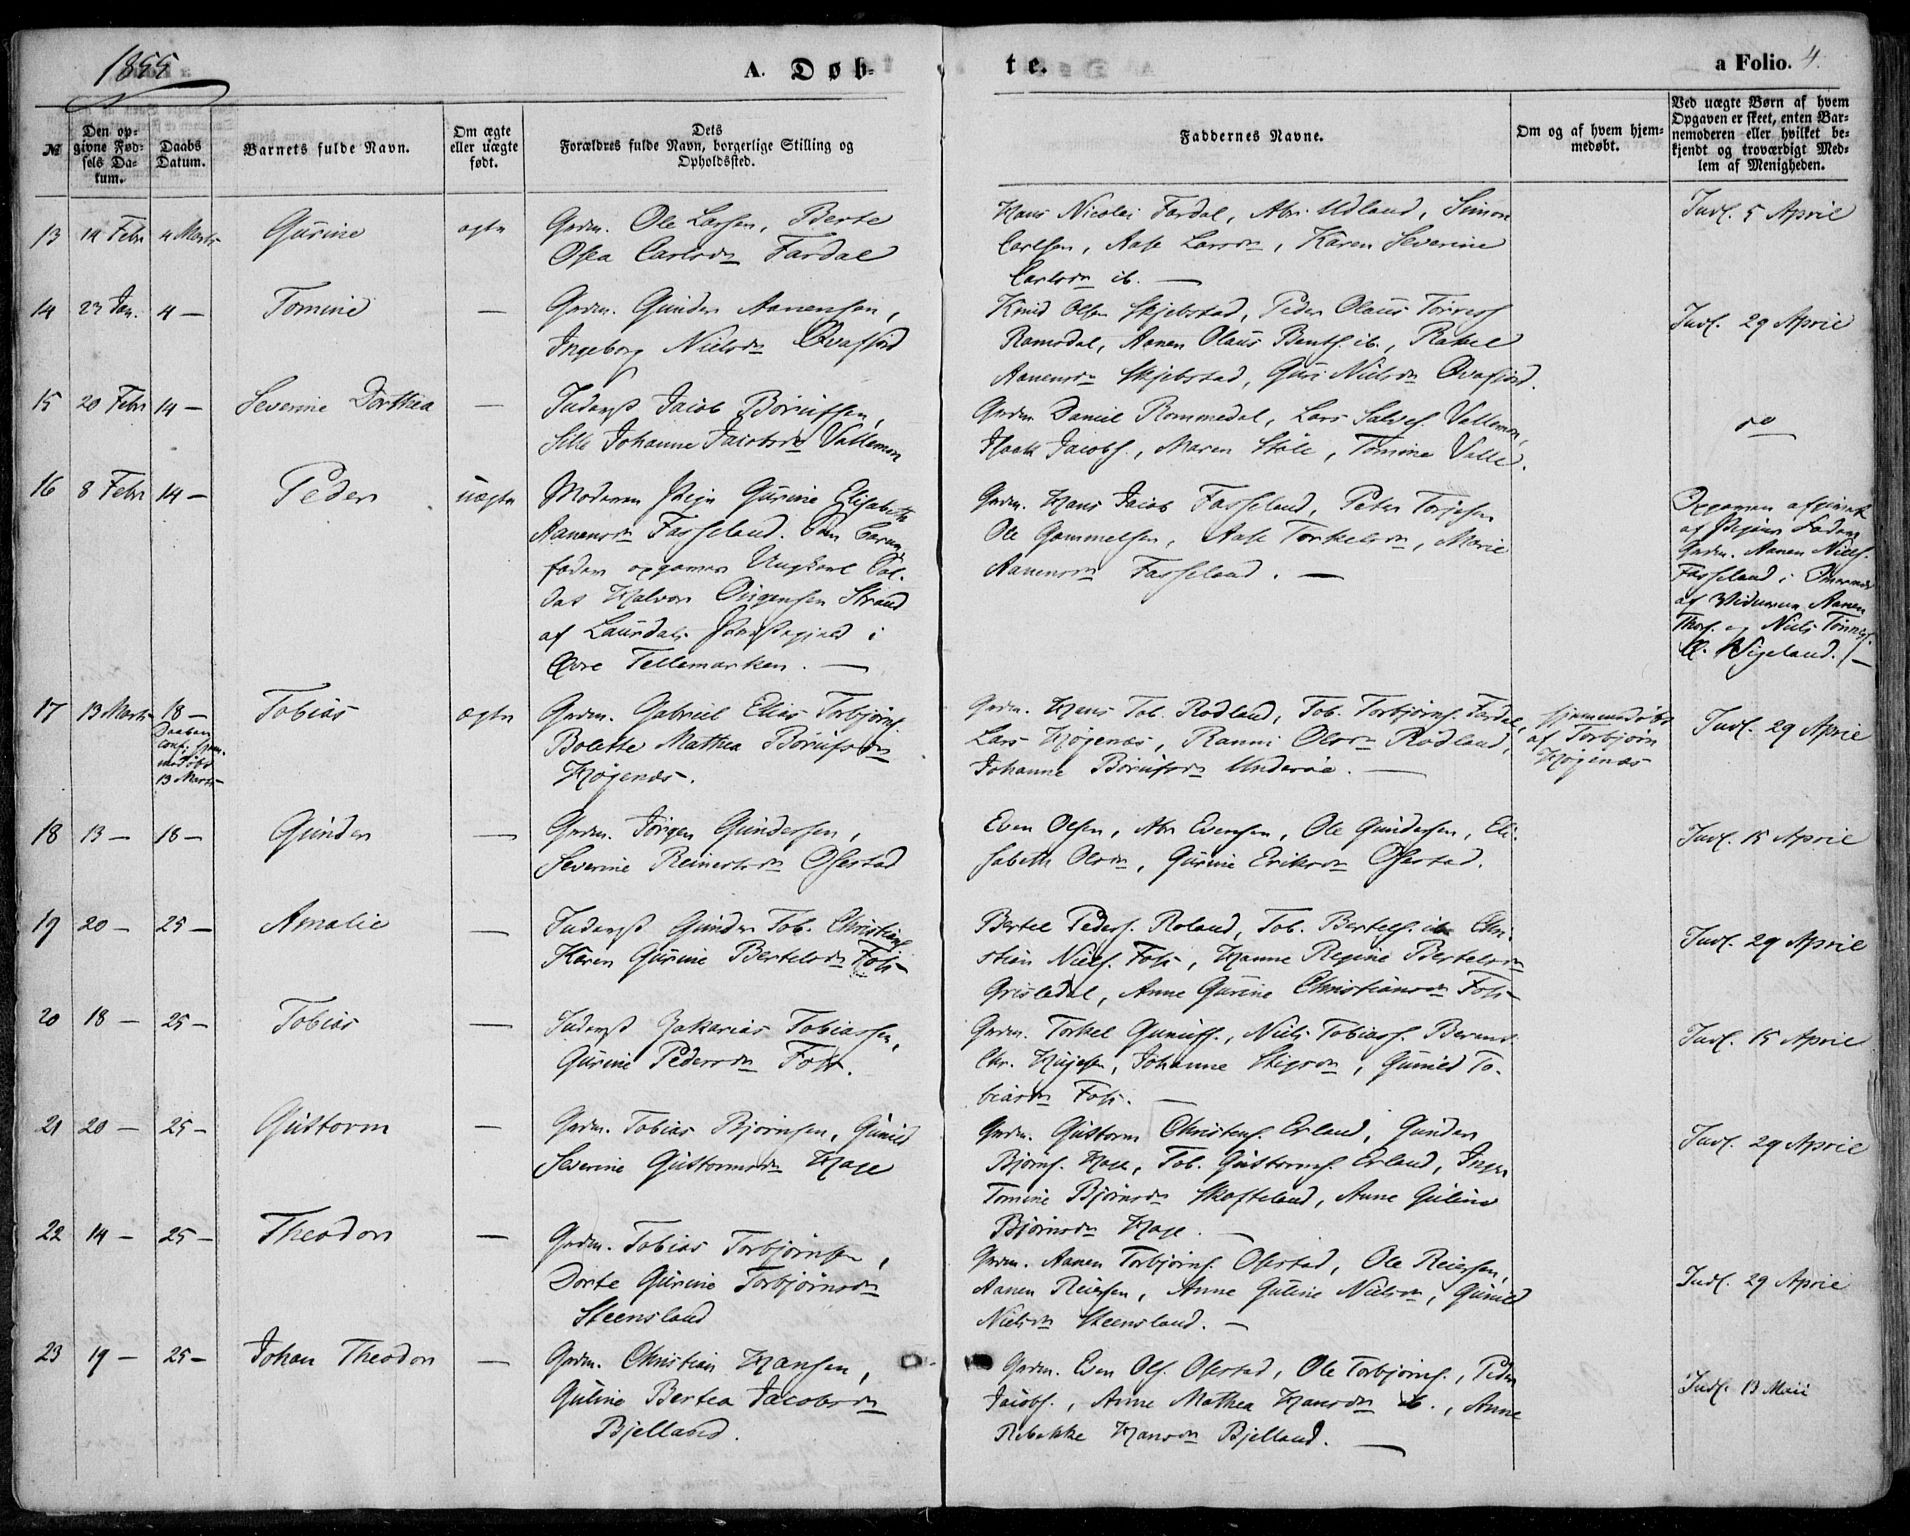 1855
A. Døb-
te.
a Folio. 4.
№
Den op-
givne Fød-
sels Da-
tum.
Daabs
Datum.
Barnets fulde Navn.
Om ægte
eller uægte
født.
Dets
Forældres fulde Navn, borgerlige Stilling og
Opholdssted.
Faddernes Navne.
Om og af hvem hjem-
medøbt.
Ved uægte Børn af hvem
Opgaven er skeet, enten Bar-
nemoderen eller hvilket be-
kjendt og troværdigt Med-
lem af Menigheden.
13 14 Febr 4 Marts Gurine ægte
Grdm. Ole Larsen, Berte
Osea Carlsdr Fardal
Hans Nicolai Fardal, Abr. Udland, Simon
Carlsen, Aase Larsdr, Karen Severine
Carlsdr ib. —
Indf. 5 April
14 23 Jan. 4 — Tomine —
Grdm. Gunder Aanensen,
Ingeborg Nielsdr Qvafjord
Knud Olsen Skjebstad, Peder Olaus Tørres
Ramsdal, Aanen Olaus Bents. ib., Rakel
Aanensdr Skjebstad, Guri Nielsdr Qvafjord.
Indf. 29 April
15 20 Febr 14 — Severine Dorthea —
Inderst Jacob Børufsen,
Sille Johanne Jacobsdr Vallemon
Grdm Daniel Rommedal, Lars Salves. Vallemon,
Isaak Jacobs., Maren Støle, Tomine Valle.
do
16 8 Febr 14 — Peder uægte
Moderen Pige Gurine Elisabeth
Aanensdr Fasseland. Som Barne-
fader opgaves Ungkarl Sol-
dat Halvor Strand
af Laurdals Præstegjeld i
Øvre Tellemarken. —
Grdm. Hans Jacob Fasseland, Peter Torjesen
Ole Gammelsen, Aase Torkelsdr, Marie
Aanensdr Fasseland. —
Opgaven afgivet
af Pigens Fader
Grdm. Aanen Niels.
Fasseland i Overvær
af Vidnerne Aanen
Thors. og Niels Tønnes.
Vigeland. —
17 13 Marts 18 — Tobias ægte
Daaben
conf. hjem-
medøbt
13 Marts
Grdm. Gabriel Elias Torbjørns.
Bolette Mathea Børufsdr
Høgenæs.
Grdm. Hans Tob. Rødland, Tob. Torbjørns. Fardal,
Lars Høgenæs, Ranni Olsdr Rødland,
Johanne Børufsdr Underøe. —
hjemmedøbt
af Torbjørn
Høgenæs
Indf. 29 April
18 13 — 18 — Gunder —
Grdm. Jørgen Gundersen,
Severine Reinertsdr Ofsestad
Even Olsen, Abr Evensen, Ole Gundersen, Eli-
sabeth Olsdr, Gurine Eriksdr Ofsestad.
Indf. 15 April
19 20 — 25 — Amalie —
Inderst Gunder Tob. Christians.
Karen Gurine Bertelsdr Foss
Bertel Peders. Roland, Tob. Bertels. ib Chri-
stian Niels. Foss, Hanne Regine Bertelsdr
Grisledal, Anne Gurine Christiansdr Foss
Indf. 29 April
20 18 — 25 — Tobias —
Inderst Zakarias Tobiassen,
Gurine Pedersdr Foss.
Grdm. Torkel Gunufs., Niels Tobiass. Berent
Chr. Skigsdr, Gunild To-
biasdr Foss. —
Indf. 15 April
21 20 — 25 — Guttorm —
Grdm. Tobias Bjørnsen, Gunild
Severine Guttormsdr Hage
Grdm. Guttorm Christens. Erland, Gunder
Bjørns. Hage, Tob. Guttorms. Erland, Inger
Tomine Bjørnsdr Skofteland, Anne Guline
Bjørnsdr Hage. —
Indf. 29 April
22 14 — 25 — Theodor —
Grdm. Tobias Torbjørnsen,
Dorte Gurine Torbjørnsdr
Steensland
Grdm. Aanen Torbjørns. Ofsestad, Ole Reiersen,
Aanen Reiersen, Anne Guline Nielsdr, Gunild
Nielsdr Steensland. —
Indf. 29 April
23 19 — 25 — Johan Theodor —
Grdm. Christian Hansen,
Guline Bertea Jacobsdr
Bjelland.
Grdm. Even Ols. Ofsestad, Ole Torbjørns., Peder
Jacobs., Anne Mathea Hansdr ib., Anne
Rebekke Hansdr Bjelland. —
Indf. 13 Maii